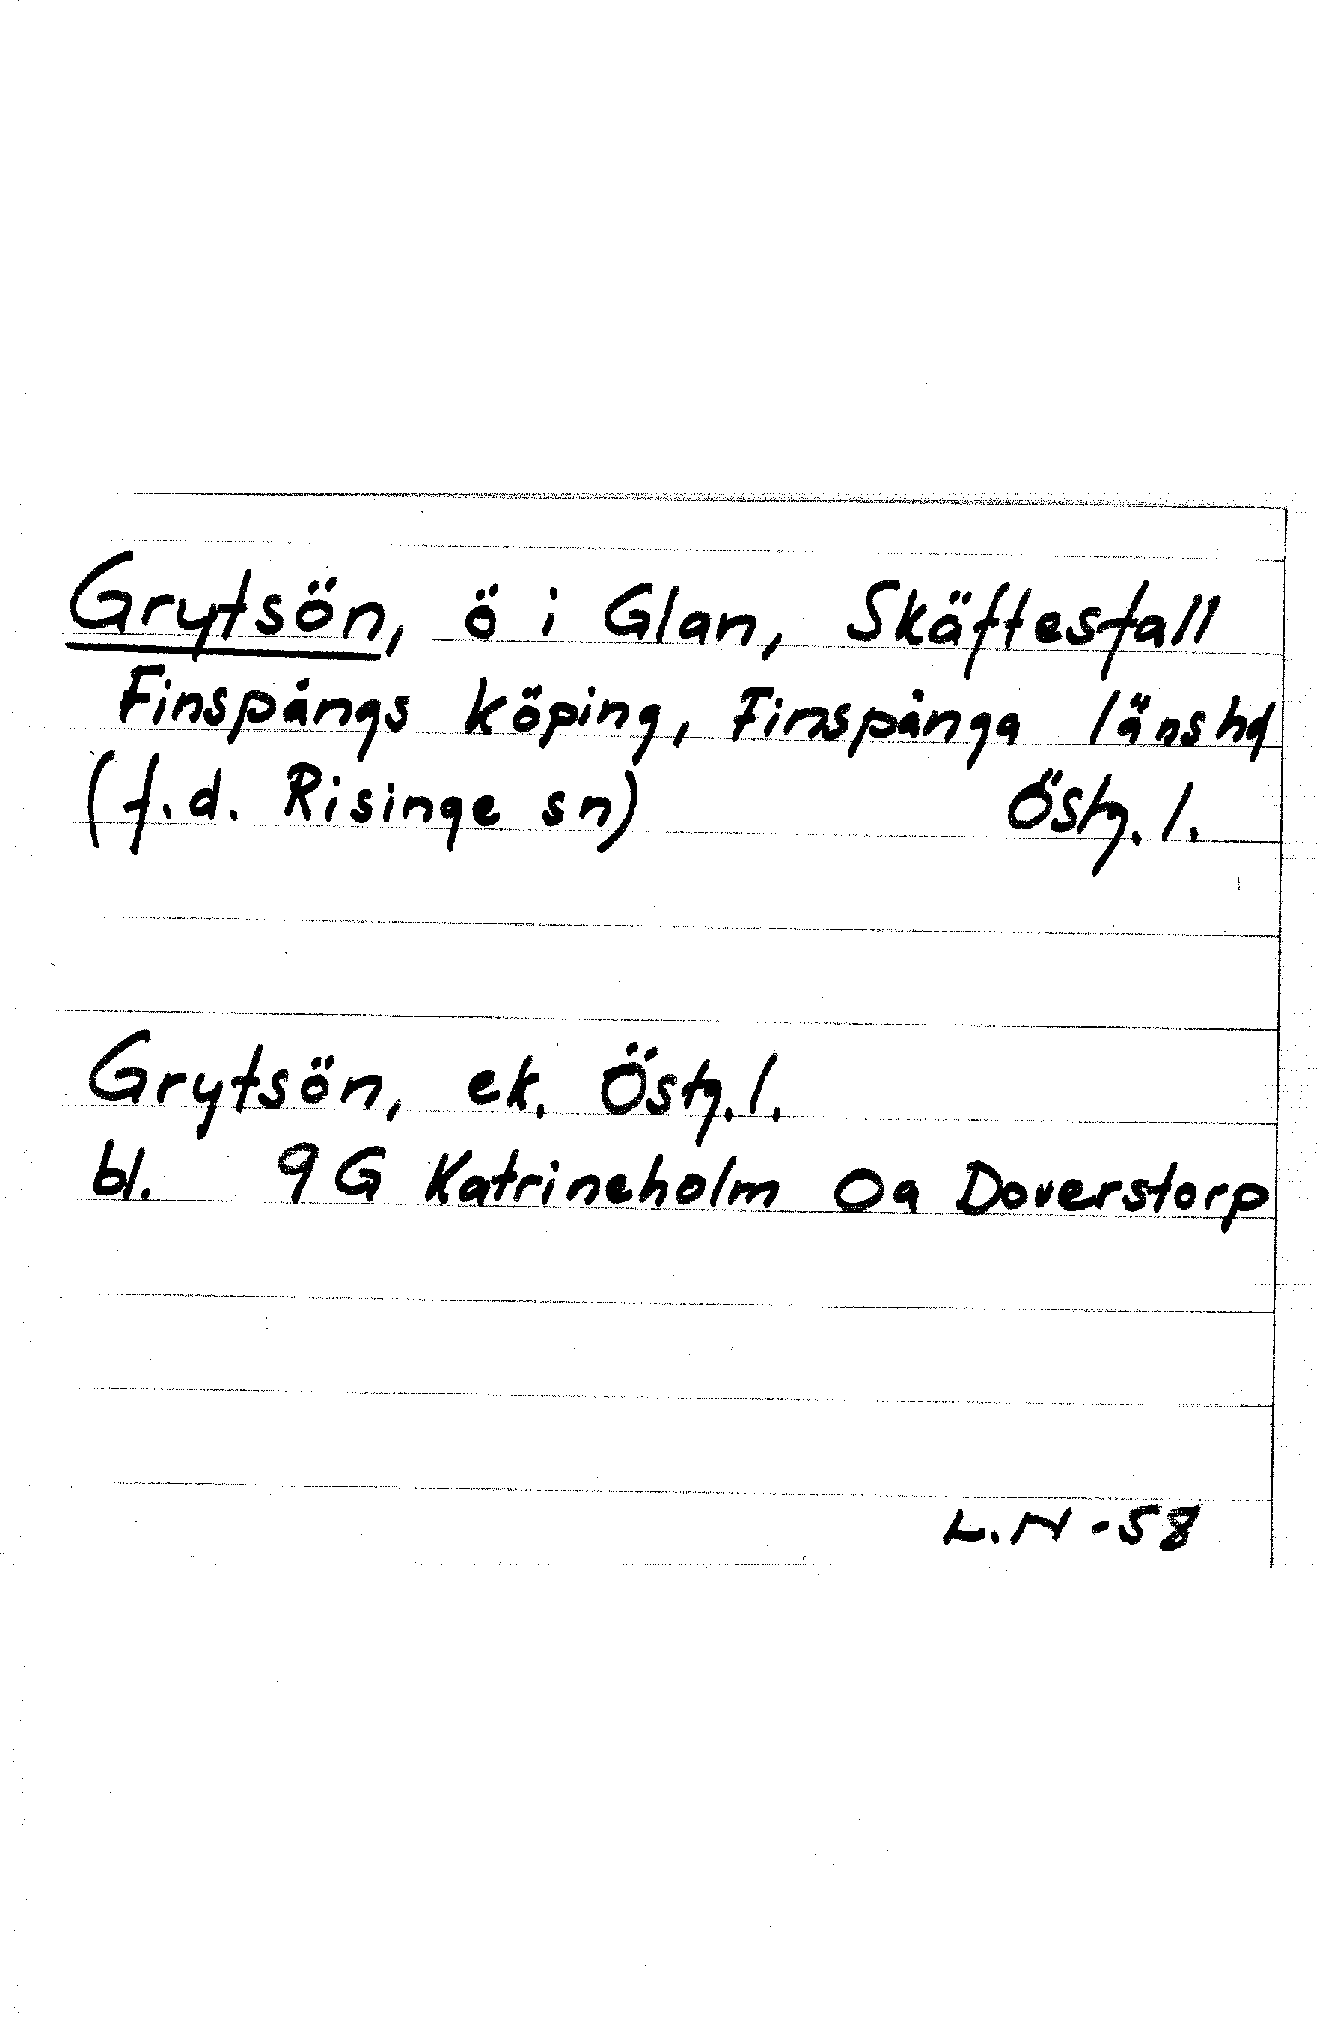 Grytsön, ö i Glan, Skäftesfall
Finspångs köping, Finspånga länshd
(f.d. Risinge sn) Östg. l.
Grytsön, ek. Östg. l.
bl. 9 G Katrineholm 0a Doverstorp
L. N -58